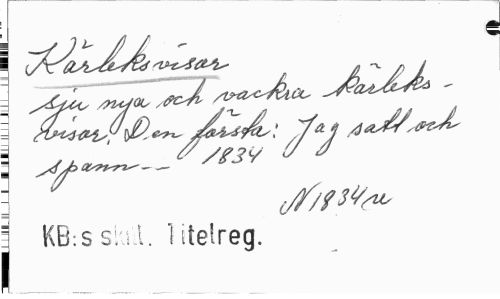 Kärleksvisar
sju nya och vackra kärleks-
visor. Den första: Jag satt och
spann-- 1834
N1834re
KB:s skill. Titelreg.